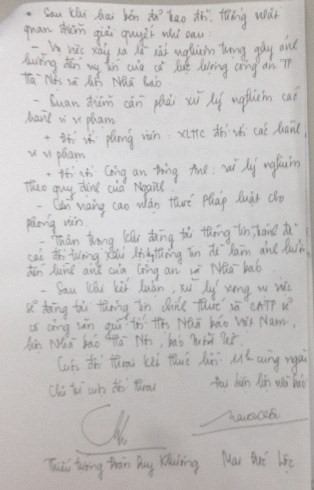 * Sau khi hai bên đã trao đổi, thống nhất
quan điểm giải quyết như sau:
- Vụ việc xảy ra là rất nghiêm trọng gây ảnh
hưởng đến uy tín của cả lực lượng công an TP
Hà Nội và hội Nhà báo
- Quan điểm cần phải xử lý nghiêm các
hành vi vi phạm
+ Đối với phóng viên: XLHC đối với các hành
vi vi phạm
+ Đối với Công an Đông Anh: xử lý nghiêm
theo quy định của Ngành.
- Cần nâng cao nhận thức pháp luật cho
phóng viên.
- Thận trọng khi đăng tải thông tin, tránh để
các đối tượng xấu thông tin để làm ảnh hưởng
đến hình ảnh của Công an và Nhà báo
- Sau khi kết luận, xử lý xong vụ việc
sẽ đăng tải thông tin chính thức và CATP sẽ
có công văn gửi tới Hội Nhà báo Việt Nam,
hội Nhà báo Hà Nội, báo
Cuộc đối thoại kết thúc hồi 11h cùng ngày
Chủ trì cuộc đối thoại Đại diện hội nhà báo
Thiếu tướng Trần Duy Khương Mai Đức Lộc